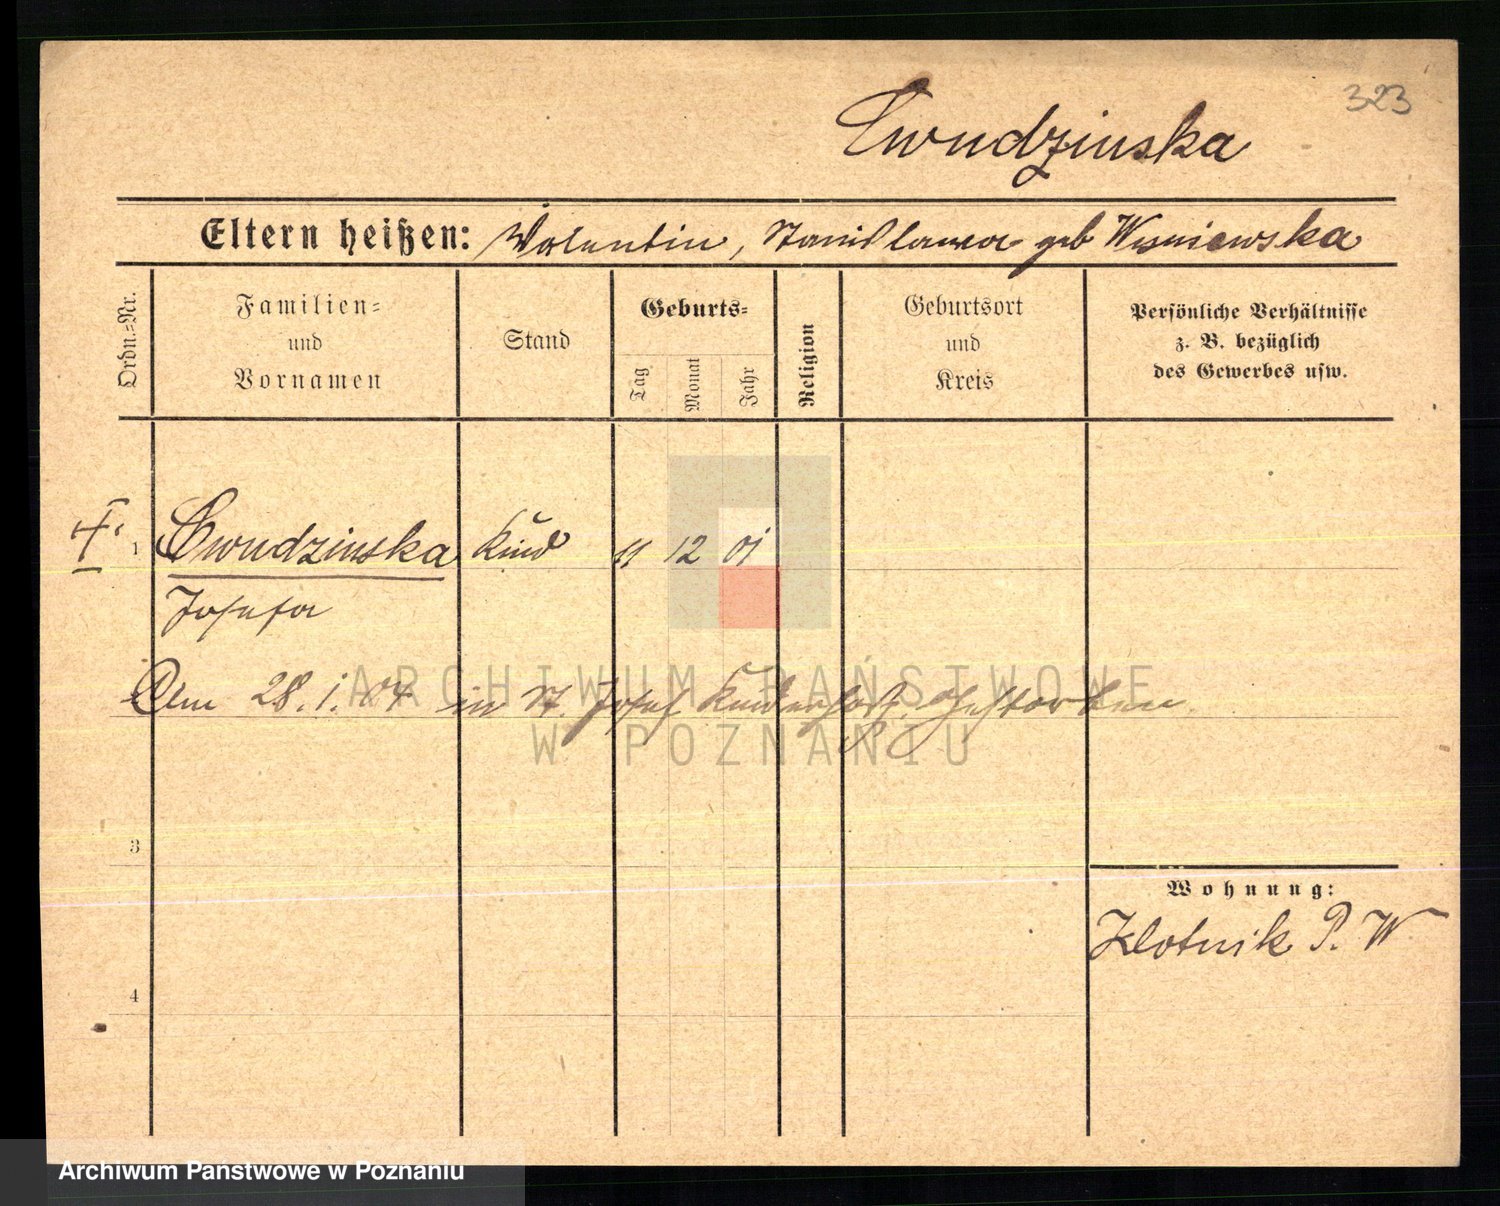 323
Cwudzinska
Eltern heißen: Valentin, Stanislawa geb Wisniewska
Ordn.=Nr.
Familien=
und
Vornamen
Stand
Geburts=
Tag
Monat
Jahr
Religion
Geburtsort
und
Kreis
Persönliche Verhältnisse
z. B. bezüglich
des Gewerbes usw.
1 Cwudzinska Kind 11 12 01
Josefa
Am 28. 1. 04 in St. Josef Kinderhosp. gestorben.
ARCHIWUM PAŃSTWOWE
W POZNANIU
3
Wohnung:
Klotnik P. W
4
Archiwum Państwowe w Poznaniu